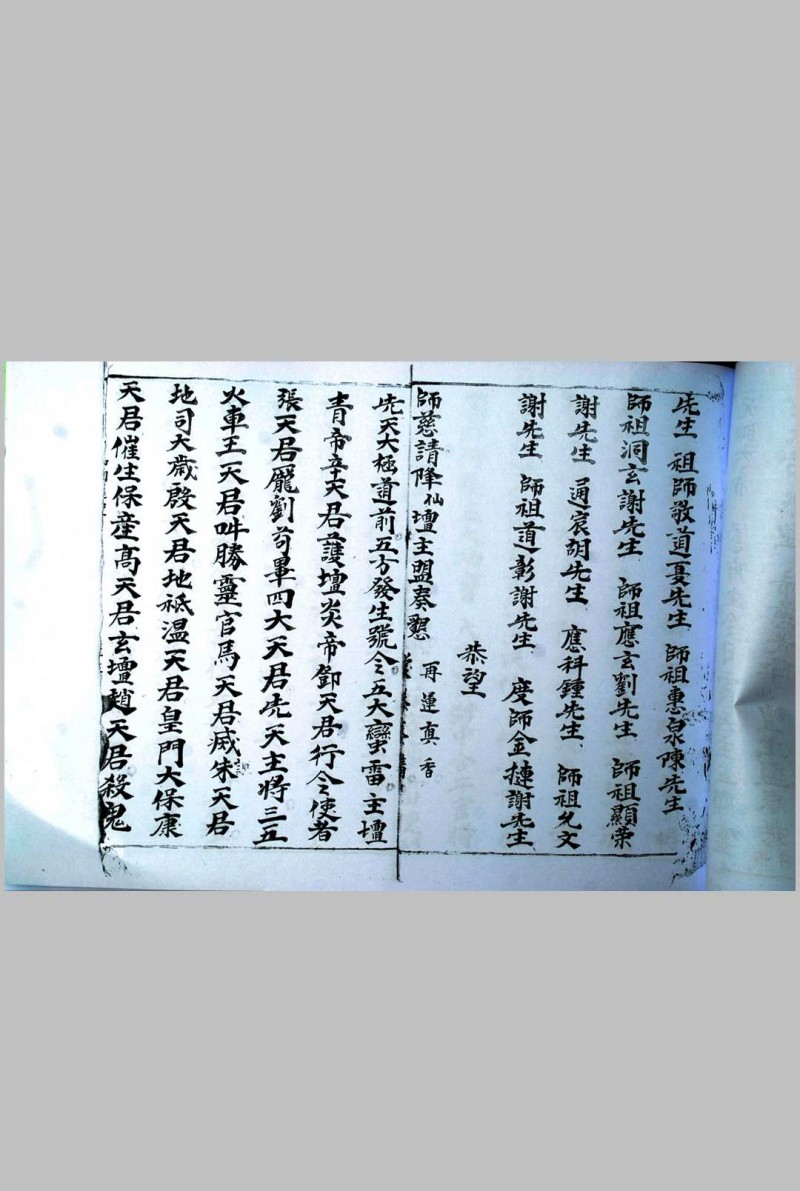 先生 祖師敬道憂先生 師祖惠泉陳先生
師祖洞玄謝先生 師祖應玄劉先生 師祖顯荣
謝先生 通宸胡先生 應科鍾先生 師祖允文
謝先生 師祖道彰謝先生 度師金槤謝先生
恭望
師慈請降仙壇主盟奏懇 再運真香
先天大極道前五方發生號令五大蠻雷主壇
青帝辛天君護壇炎帝鄧天君行令使者
張天君龐劉苟畢四大天君先天主將三五
火車王天君叫勝靈官馬天君威朱天君
地司大歲殷天君地祇温天君皇門大保康
天君催生保産高天君玄壇趙天君殺鬼